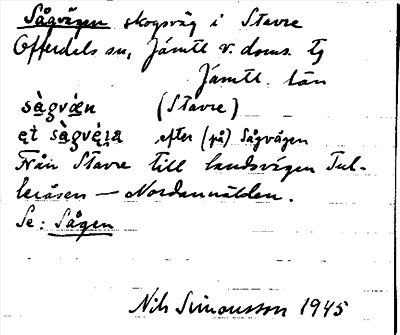 Sågvägen skogsväg i Stavre
Offerdals sn, Jämtl v. doms. tg
Jämtl. län
sàgvæn (Stavre)
et sàgvéɪa efter (på) Sågvägen
Från Stavre till landsvägen Tul-
leråsen — Nordannälden.
Se: Sågen
Nils Simonsson 1945